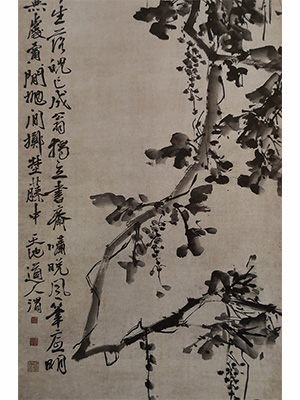 生落魄已成翁獨立書齋嘯晚風筆底明
無處賣閒拋閒擲埜藤中
天池道人渭